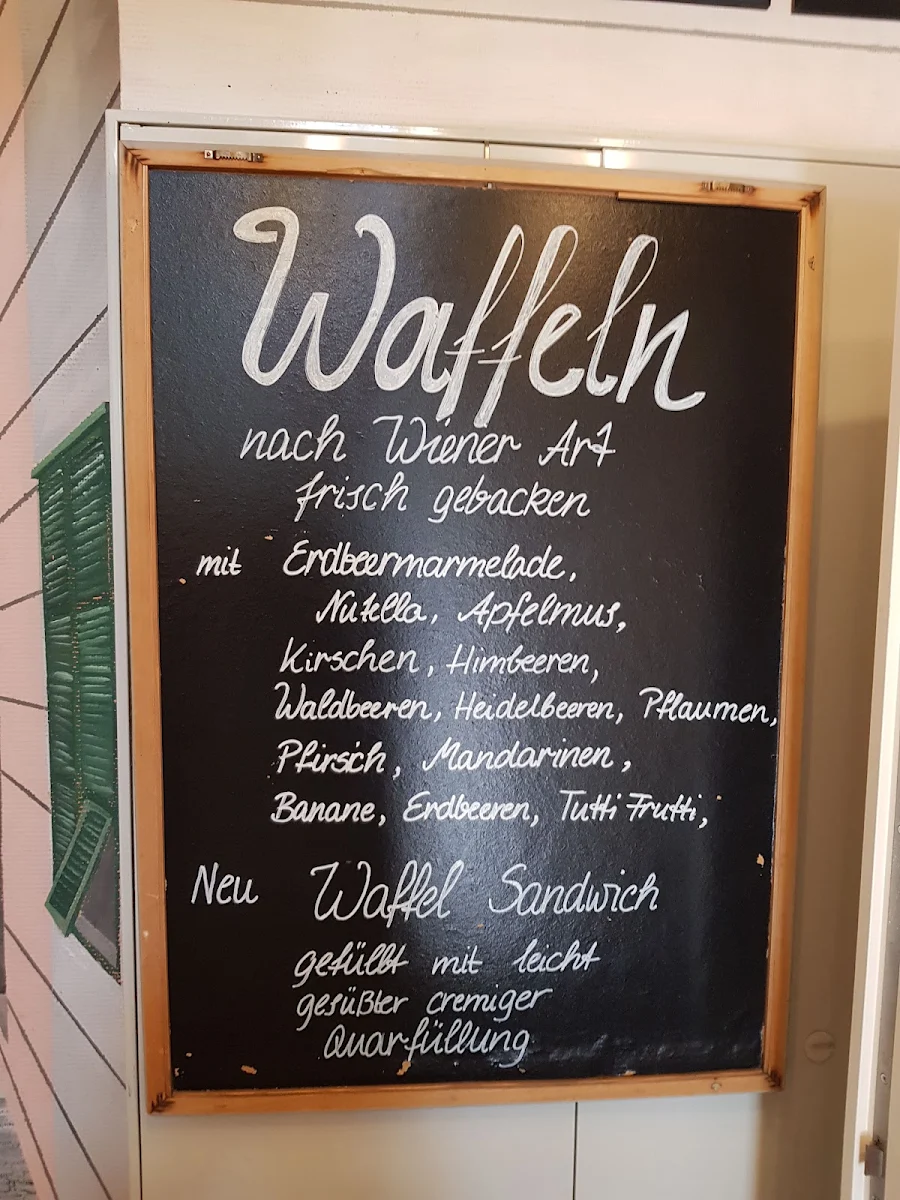 Waffeln
nach Wiener Art
frisch gebacken
mit Erdbeermarmelade,
Nutella, Apfelmus,
Kirschen, Himbeeren,
Waldbeeren, Heidelbeeren, Pflaumen,
Pfirsich, Mandarinen,
Banane, Erdbeeren, Tutti Frutti,
Neu Waffel Sandwich
gefüllt mit leicht
gesüßter cremiger
Quarfüllung